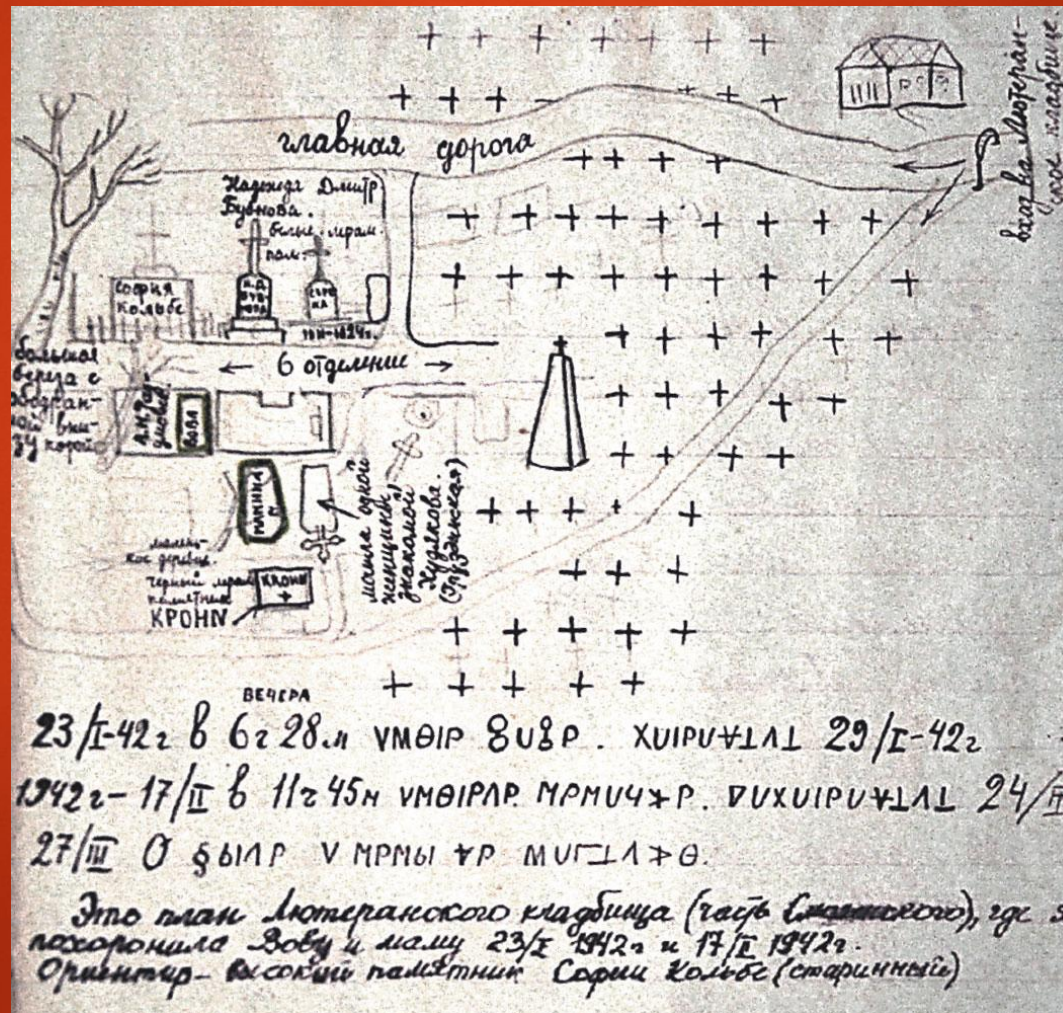 главная дорога
вход на Лютеран-
ское кладбище.
Надежда Дмитр
Бубнова.
белые мрам.
пам.
СОФИЯ
Кольбе
← 6 отделение →
большая
береза с
ободран-
ной вни-
зу корой
ВОВА
МАМИНА
малень-
кое деревце.
черный мрам
памятник
КРОНН
КРОНН
могила одной
женщины
знакомой
Худякова.
(Груздинская)
ВЕЧЕРА
23/I-42г в 6г 28м VMΘIP 8U8P. XUIPU∀⊥Λ⊥ 29/I-42г
1942г - 17/II в 11г 45м VMΘIPΛP. MPMUЧ⚹P. ∇UXUIPU∀⊥Λ⊥ 24/II
27/III О §ЫΛP V MPMЫ ∀P
Это план Лютеранского кладбища (часть Смоленского), где я
похоронила Вову и маму 23/I 1942г и 17/II 1942г.
Ориентир - высокий памятник Софии Кольбе (старинный)